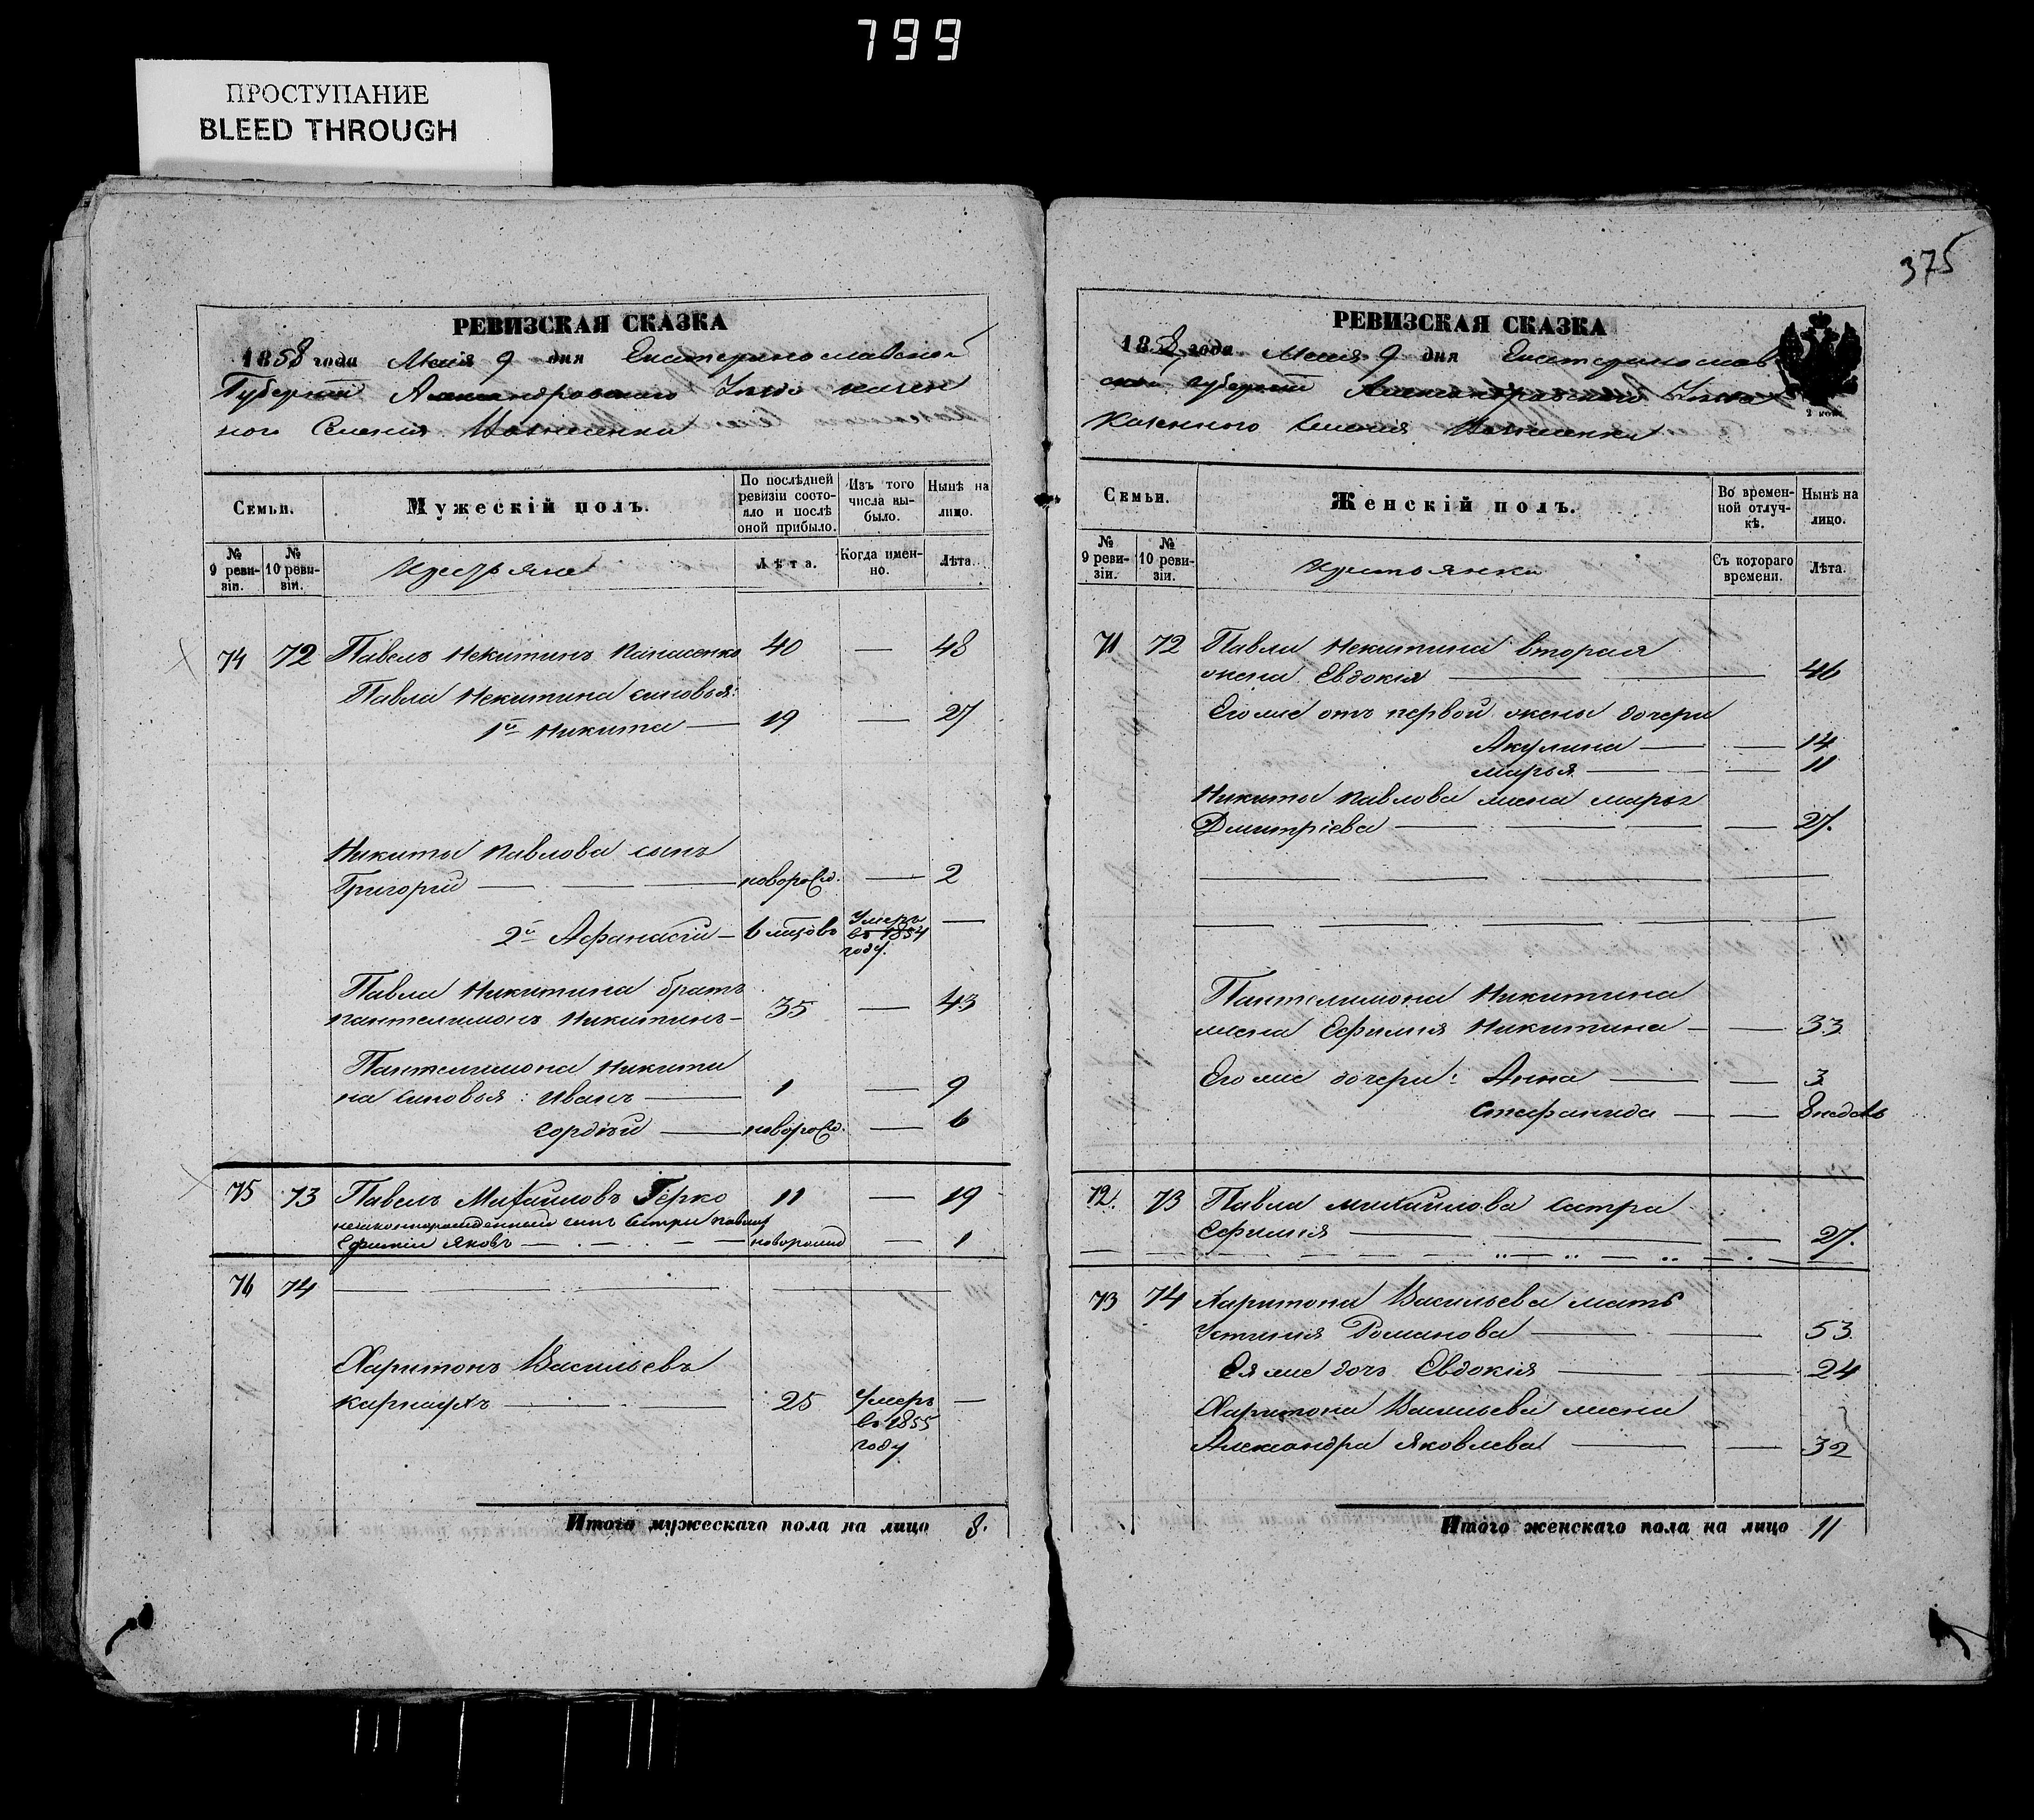 799
ПРОСТУПАНИЕ
BLEED THROUGH
РЕВИЗСКАЯ СКАЗКА
1858 года Маія 9 дня Екатеринославской
Губерніи Александровскаго Уезда казен
ного Селенія
Семьи.
Мужескій полъ.
По послѣдней ревизіи состояло и послѣ оной прибыло.
Изъ того числа выбыло.
Нынѣ на лицо.
№ 9 ревизіи.
№ 10 ревизіи.
Лѣта.
Когда именно.
Лѣта.
74 72 Павелъ Некитинъ Панасенко 40 — 48
Павла Некитина сыновья:
1й Никита — 19 — 27
Никиты Павлова сынъ
Григорій — новорожд. — 2
2й Афанасій — 6 мѣсцовъ Умеръ въ 1854 году. —
Павла Никитина братъ
Пантелимонъ Никитинъ — 35 — 43
Пантелимона Никити
на сыновья: Иванъ — 1 — 9
Гордѣй — новорожд. — 6
75 73 Павелъ Михайловъ Герко 11 — 19
незаконнорожденный сынъ сестры Павла
Ефиміи Яковъ — новорожд — 1
76 74
Харитонъ Васильевъ
Карнаухъ — 25 Умеръ въ 1855 году —
Итого мужескаго пола на лицо 8.
375
РЕВИЗСКАЯ СКАЗКА
1858 года Маія 9 дня Екатеринослав
ской губерніи Александровскаго Уезда
Казенного Селенія
2 коп.
Семьи.
Женскій полъ.
Во временной отлучкѣ.
Нынѣ на лицо.
№ 9 ревизіи.
№ 10 ревизіи.
Съ котораго времени.
Лѣта.
71 72 Павла Некитина вторая
жена Евдокія — 46
Его же отъ первой жены дочери
Акулина — — 14
Марья — — 11
Никиты Павлова жена Марья
Дмитріева — — 27.
Пантелимона Никитина
жена Ефимія Никитина — — 33
Его же дочери: Анна — — 3
Стефанида — — 8 недель
72. 73 Павла Михайлова сестра
Ефимія — — 27.
73 74 Харитона Васильева мать
Устинія Романова — 53
Ея же дочь Евдокія — 24
Харитона Васильева жена
Александра Яковлева — — 32
Итого женскаго пола на лицо 11